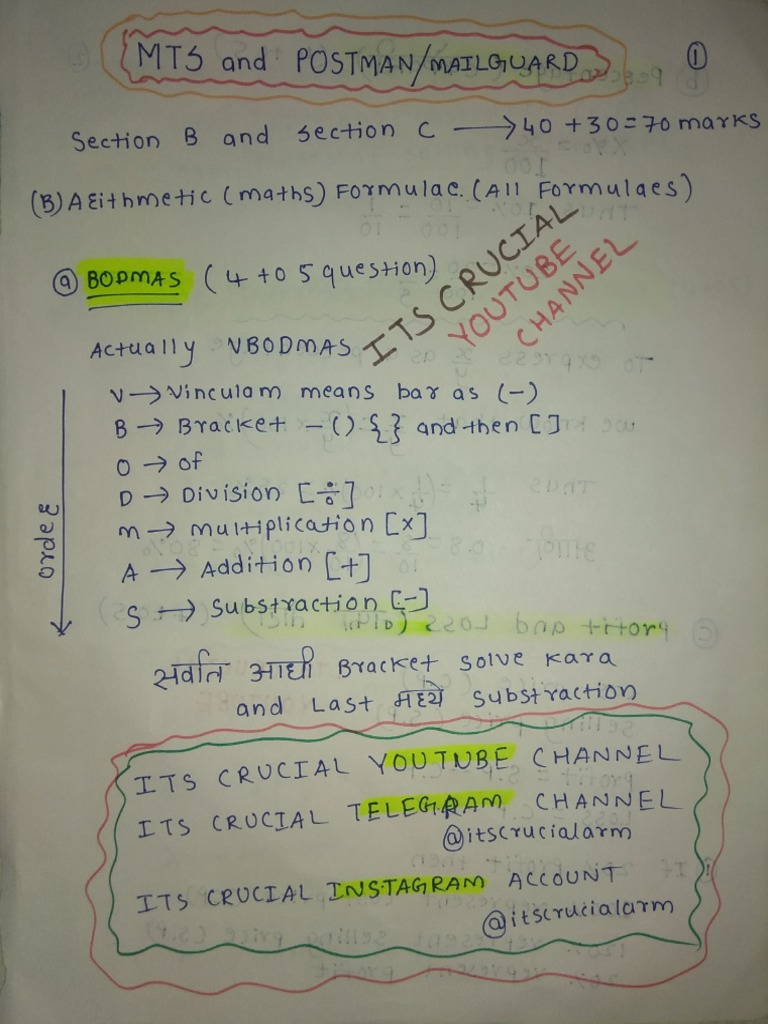 MTS and POSTMAN/MAILGUARD
①
Section B and Section C → 40 + 30 = 70 marks
(B) Arithmetic (maths) Formulae. (All Formulaes)
ⓐ BODMAS ( 4 to 5 question)
ITS CRUCIAL
YOUTUBE
CHANNEL
Actually VBODMAS
order
V → Vinculam means bar as (-)
B → Bracket - () {} and then []
O → of
D → Division [÷]
m → multiplication [x]
A → Addition [+]
S → Substraction [-]
सर्वात आधी Bracket solve kara
and Last मध्ये substraction
ITS CRUCIAL YOUTUBE CHANNEL
ITS CRUCIAL TELEGRAM CHANNEL
@itscrucialarm
ITS CRUCIAL INSTAGRAM ACCOUNT
@itscrucialarm